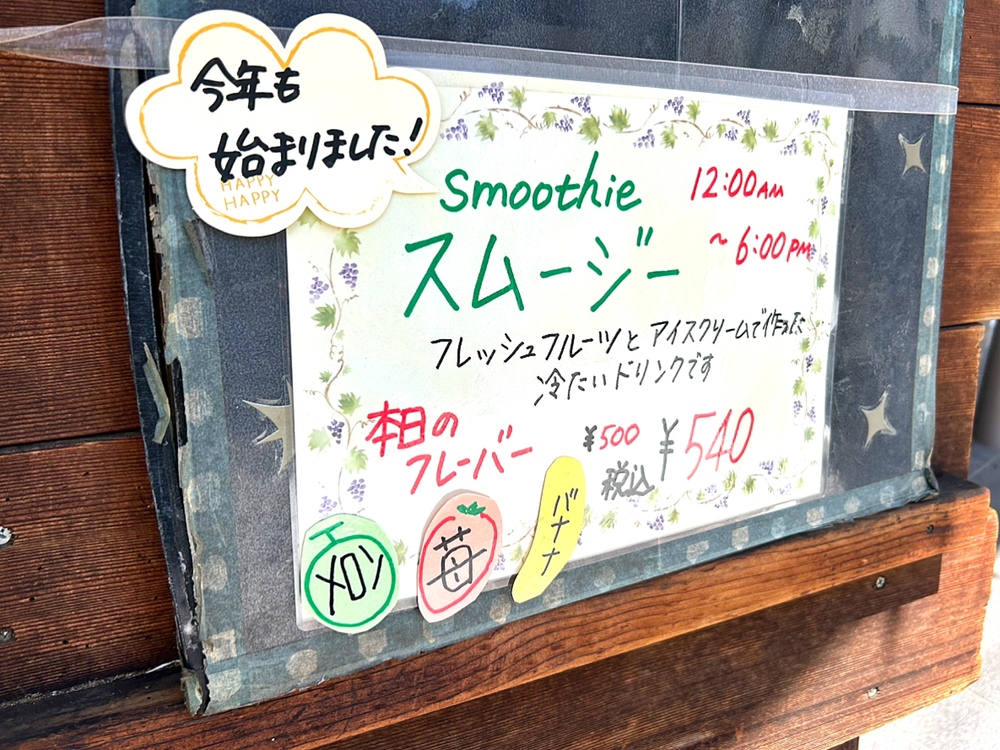 今年も
始まりました!
HAPPY
HAPPY
Smoothie
12:00AM
~6:00PM
スムージー
フレッシュフルーツとアイスクリームで作った
冷たいドリンクです
本日の
フレーバー
¥500
税込 ¥540
メロン
苺
バナナ